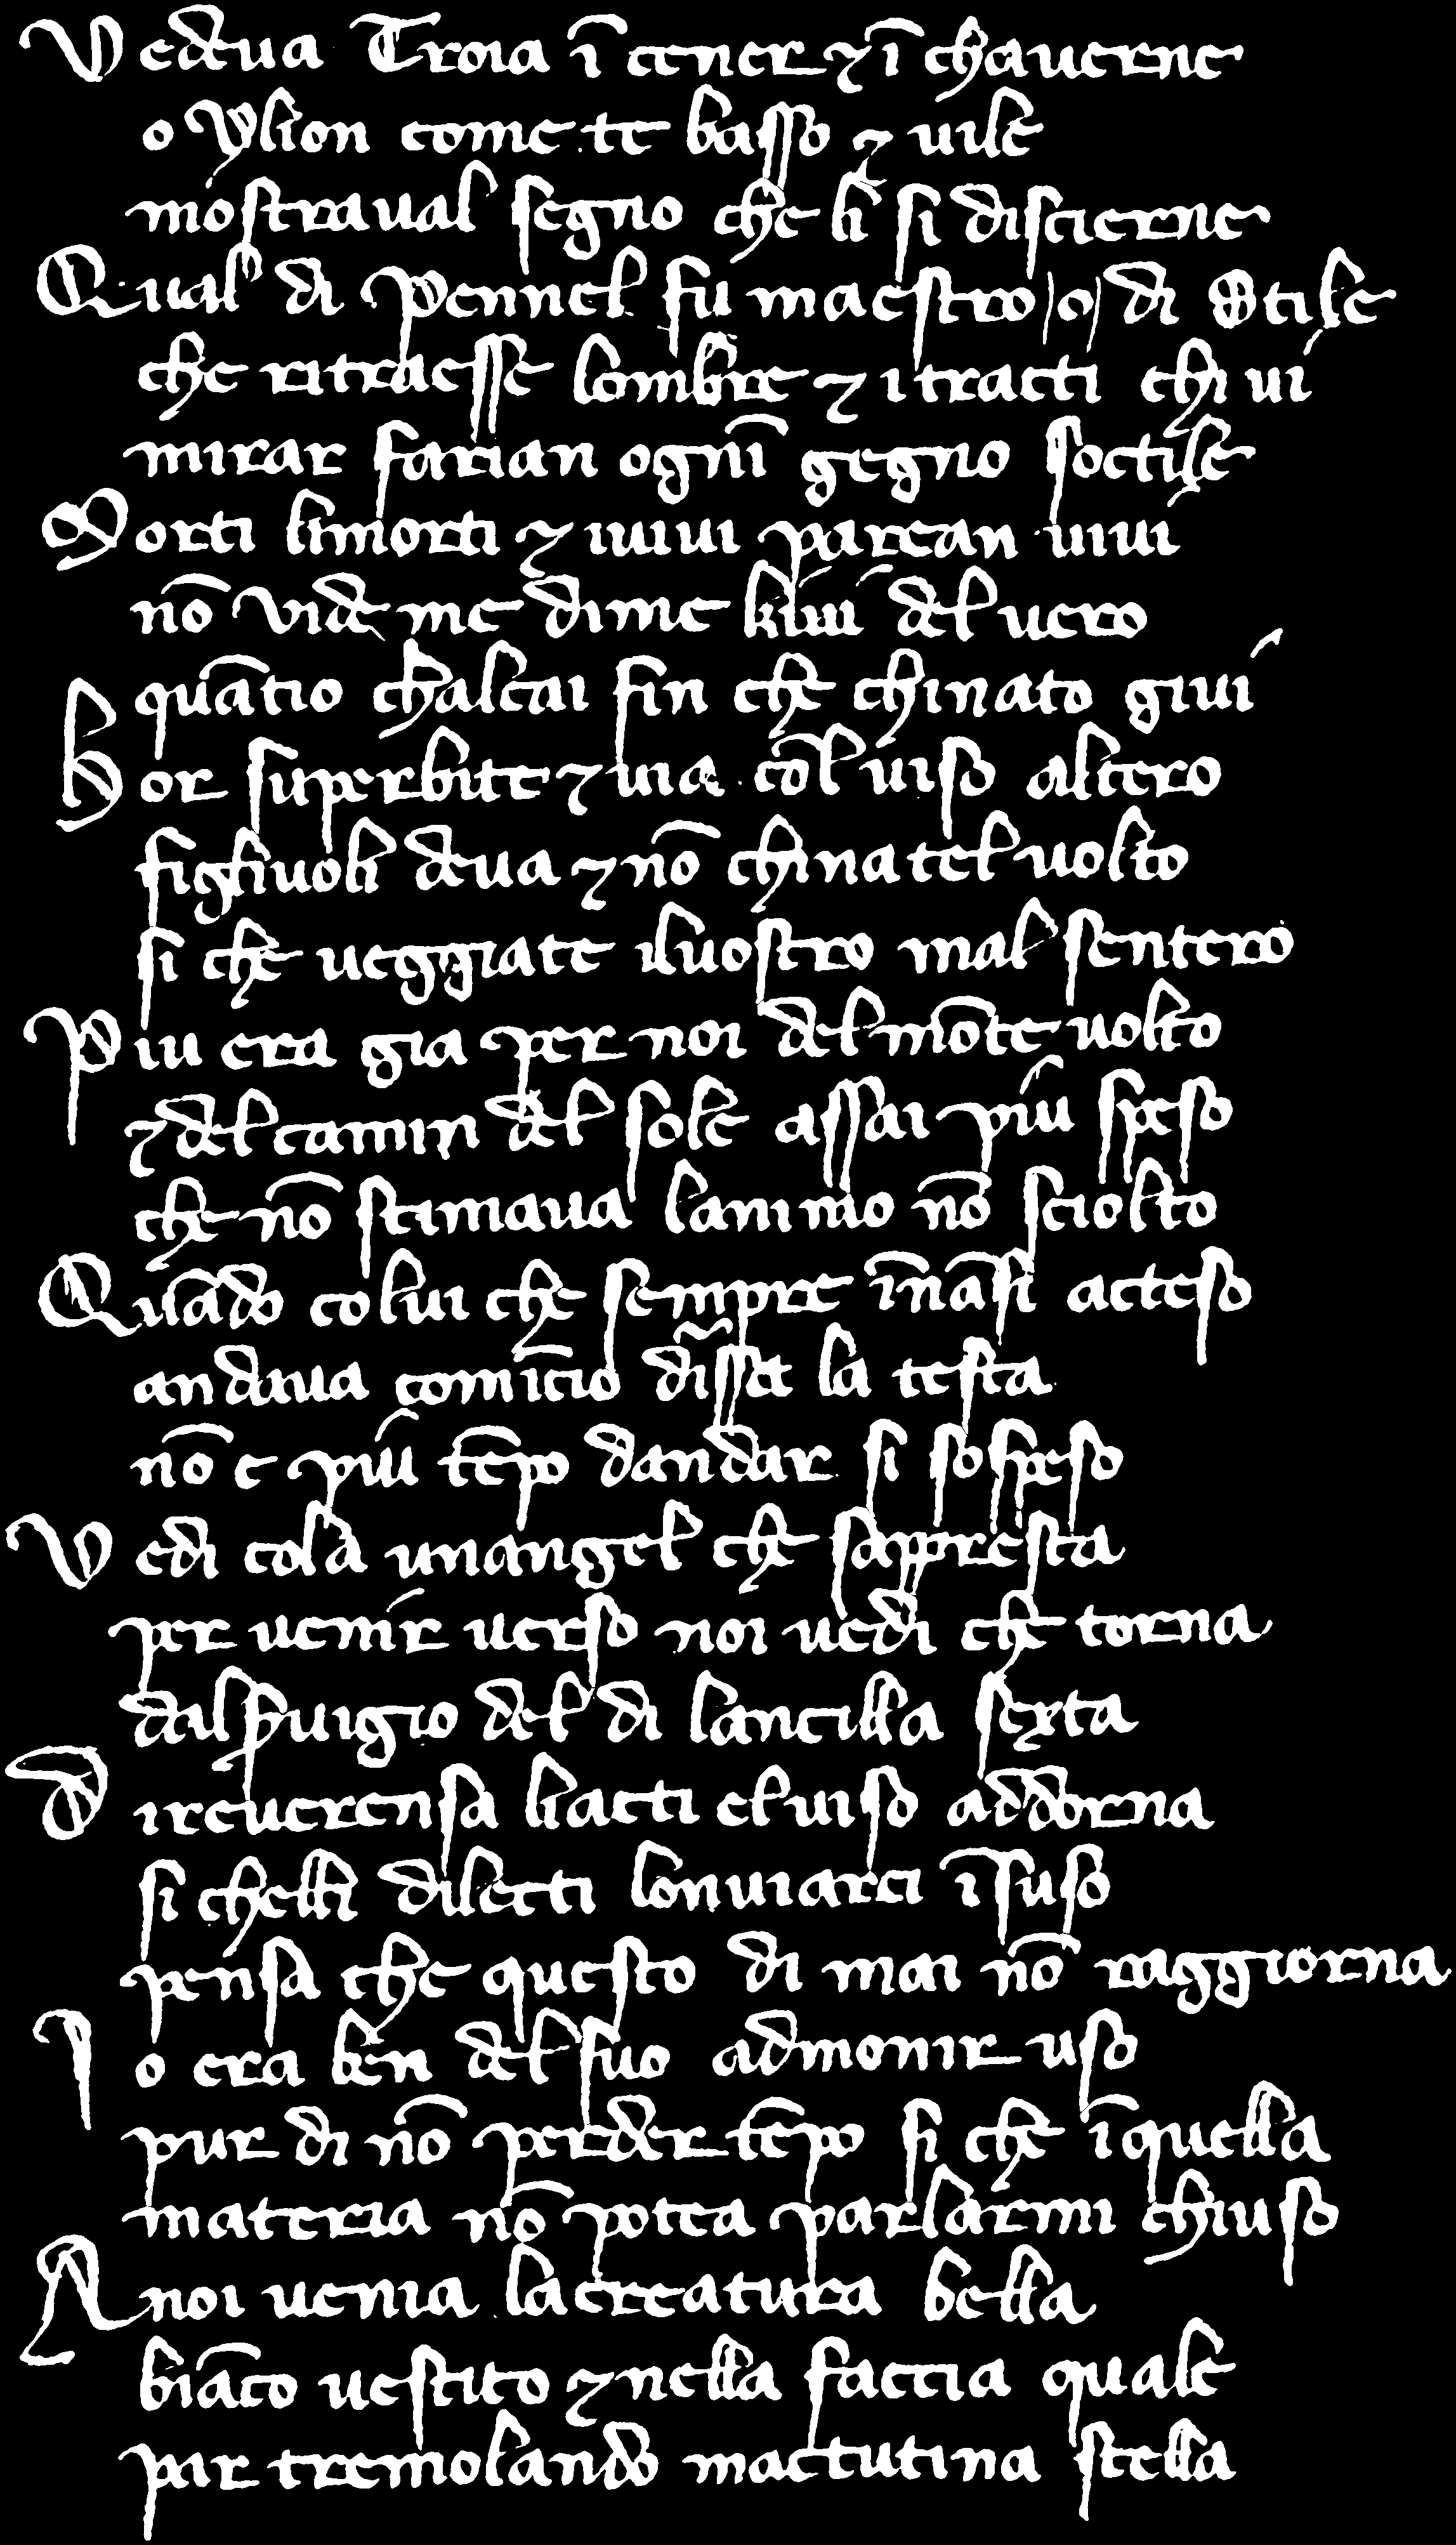 Vedeua Troia ī cener ⁊ ī chauerne
o Ylion come te basso ⁊ uile
mostraual segno che li si discierne
Qual di Pennel fu maestro /o/ di Stile
che ritraesse lombre ⁊ i tracti chi ui
mirar farian ognī gegno soctile
Morti limorti ⁊ iuiui parean uiui
nō vide me di me kiui del uero
quātio chalcai fin che chinato giui
Hor superbite ⁊ uia cōl uiso altero
figliuoli deua ⁊ nō chinatel uolto
si che ueggiate iluostro mal sentero
Piu era gia per noi del mōte uolto
⁊ del camin del sole assai piu speso
che nō stimaua lanimo nō sciolto
Quādo colui che sempre īnāsi acteso
andaua comīcio dissct la testa
nō e piu tēpo dandar si sospeso
Vedi cola unangel che sappresta
per uenir uerso noi uedi che torna
dalseruigio del di lancilla sexta
Direuerensa liacti eluiso addorna
si chelli dilecti lonuiarci ī suso
pensa che questo di mai nō raggiorna
Io era ben del suo admonir uso
pur di nō perder tēpo si che ī quella
materia nō potea parlarmi chiuso
A noi uenia lacreatura bella
biāco uestito ⁊ nella faccia quale
par tremolando mactutina stella